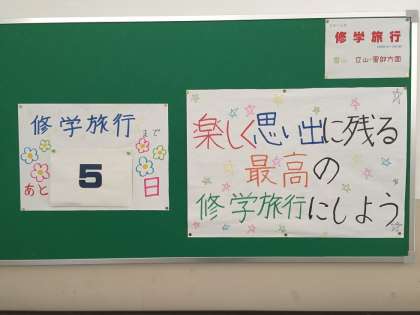 修学旅行まで
あと 5 日
楽しく思い出に残る
最高の
修学旅行にしよう
修学旅行
立山・雷鳥方面